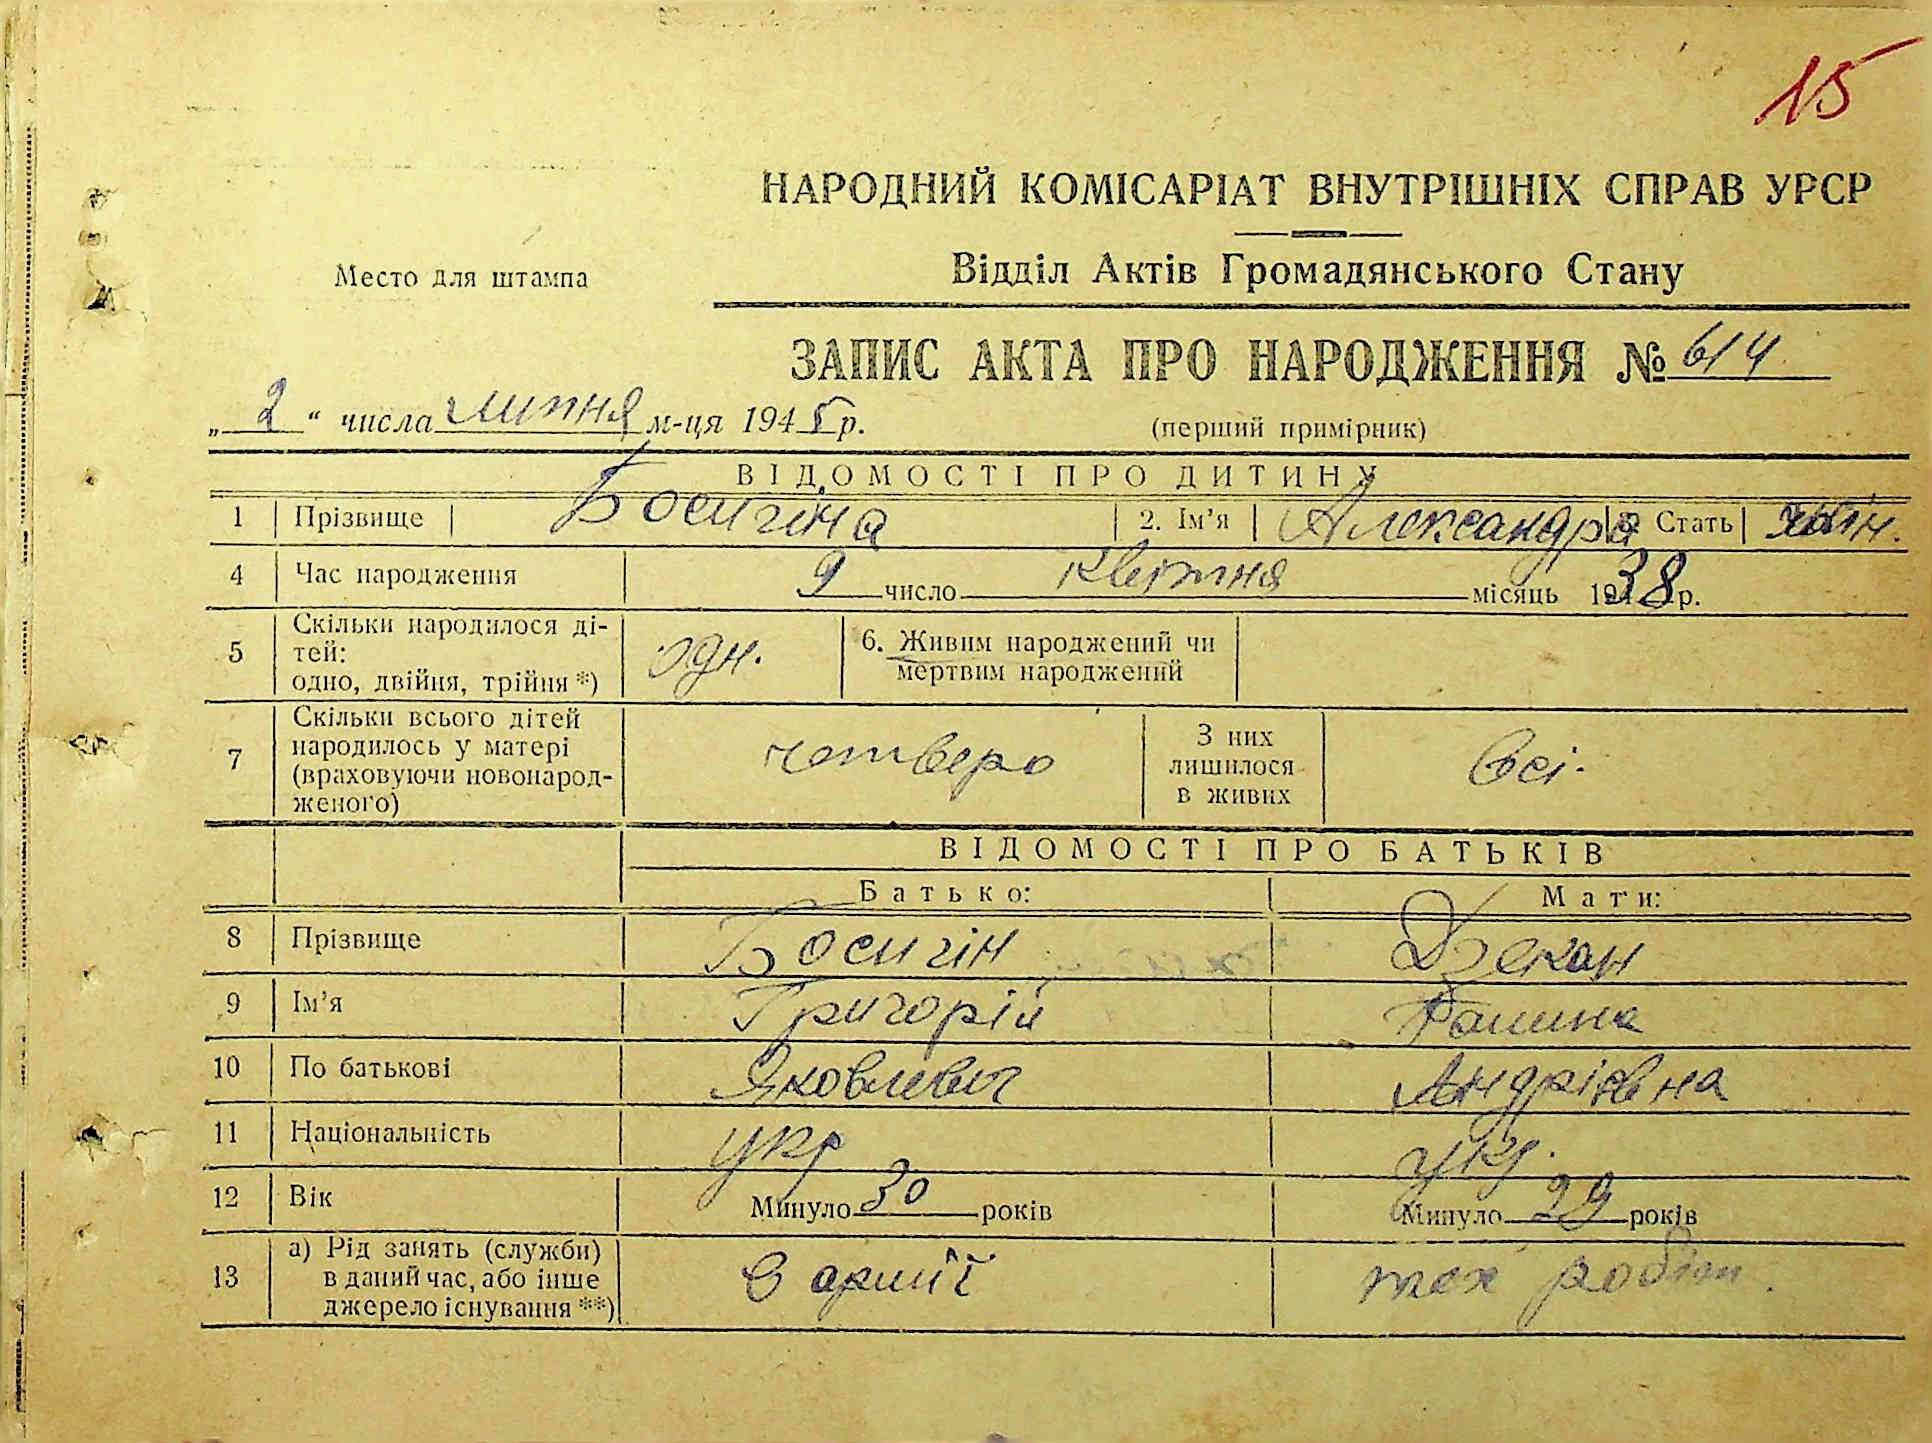 15
НАРОДНИЙ КОМІСАРІАТ ВНУТРІШНІХ СПРАВ УРСР
Место для штампа
Відділ Актів Громадянського Стану
ЗАПИС АКТА ПРО НАРОДЖЕННЯ № 614
„ 2 “ числа липня м-ця 1945 р.
(перший примірник)
ВІДОМОСТІ ПРО ДИТИНУ
1 Прізвище Босигіна 2. Ім’я Александра 3. Стать жін.
4 Час народження 9 число квітня місяць 1938 р.
5 Скільки народилося ді-
тей:
одно, двійня, трійня *) одн. 6. Живим народжений чи
мертвим народжений
7 Скільки всього дітей
народилось у матері
(враховуючи новонарод-
женого) четверо З них
лишилося
в живих всі.
ВІДОМОСТІ ПРО БАТЬКІВ
Батько: Мати:
8 Прізвище Босигін Дзекан
9 Ім’я Григорій Галина
10 По батькові Яковлевич Андріівна
11 Національність укр укр.
12 Вік Минуло 30 років Минуло 29 років
13 а) Рід занять (служби)
в даний час, або інше
джерело існування **) в армії тех робіт.